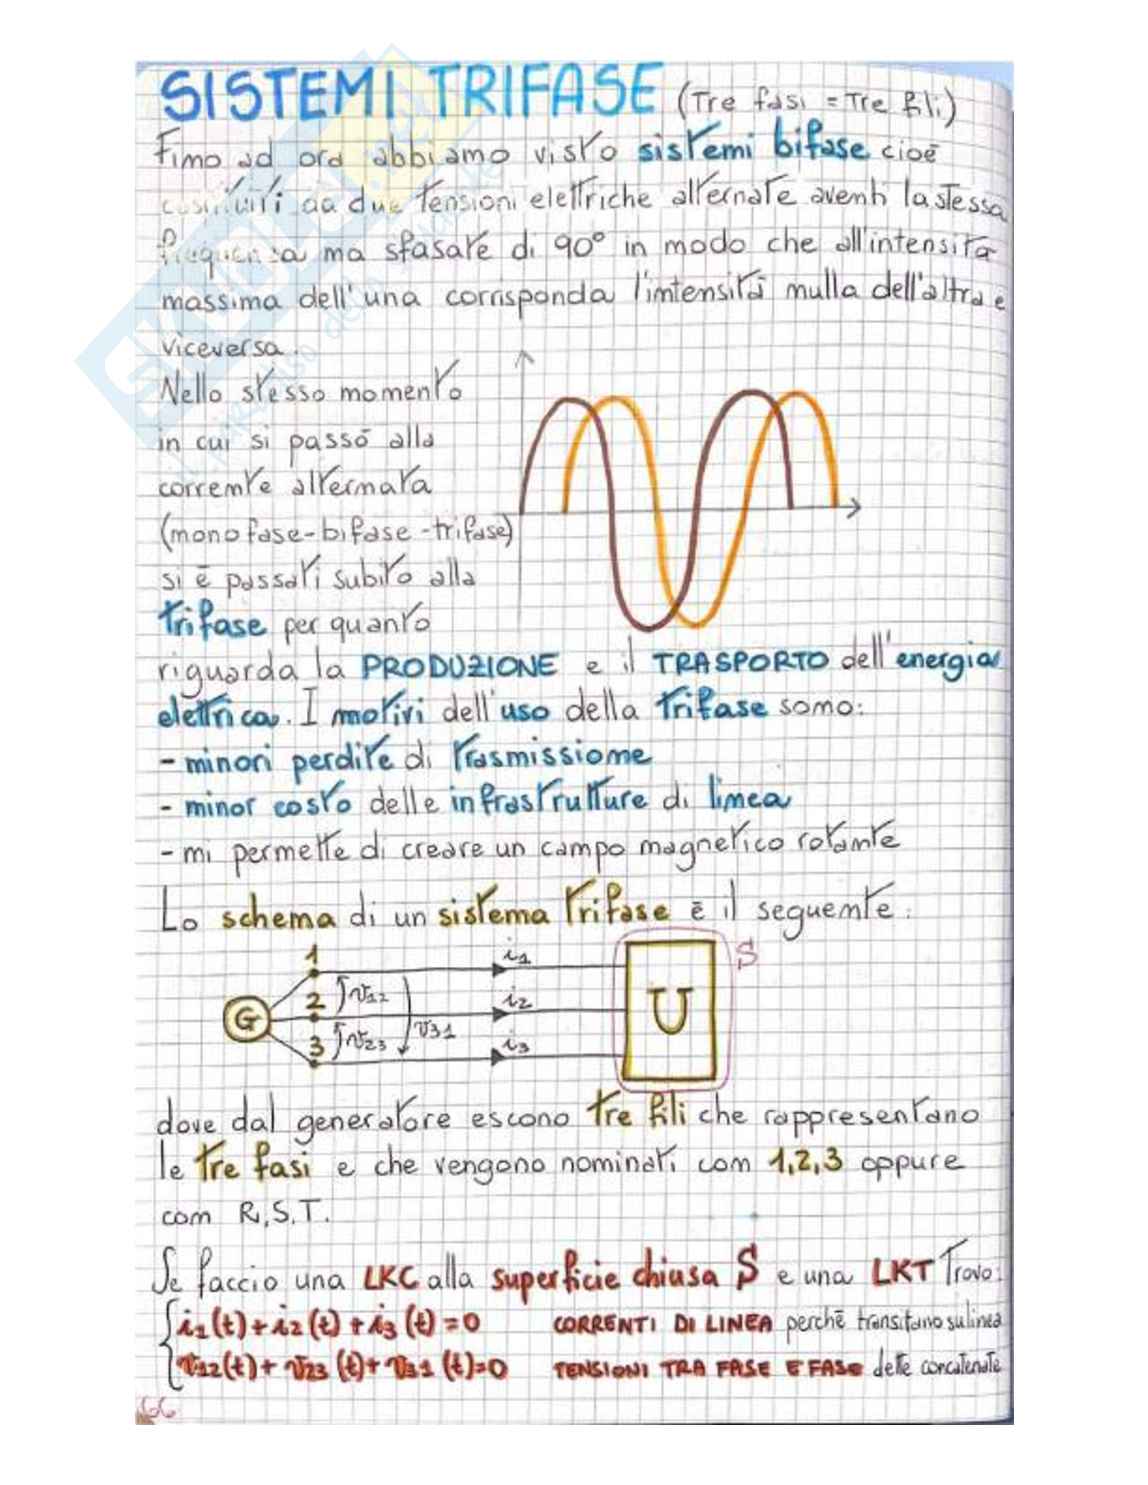 SISTEMI TRIFASE (Tre fasi = Tre fili)
Fino ad ora abbiamo visto sistemi bifase cioè
costituiti da due tensioni elettriche alternate aventi la stessa
frequenza ma sfasate di 90° in modo che all'intensità
massima dell'una corrisponda l'intensità nulla dell'altra e
viceversa.
Nello stesso momento
in cui si passò alla
corrente alternata
(monofase-bifase-trifase)
si è passati subito alla
trifase per quanto
riguarda la PRODUZIONE e il TRASPORTO dell'energia
elettrica. I motivi dell'uso della trifase sono:
- minori perdite di trasmissione
- minor costo delle infrastrutture di linea
- mi permette di creare un campo magnetico rotante
Lo schema di un sistema trifase è il seguente:
1 i1 S
G 2 v12 i2 U
3 v23 v31 i3
dove dal generatore escono tre fili che rappresentano
le tre fasi e che vengono nominati con 1,2,3 oppure
con R,S,T.
Se faccio una LKC alla superficie chiusa S e una LKT trovo:
i1(t)+i2(t)+i3(t)=0 CORRENTI DI LINEA perchè transitano su linea
v12(t)+v23(t)+v31(t)=0 TENSIONI TRA FASE E FASE dette concatenate
66